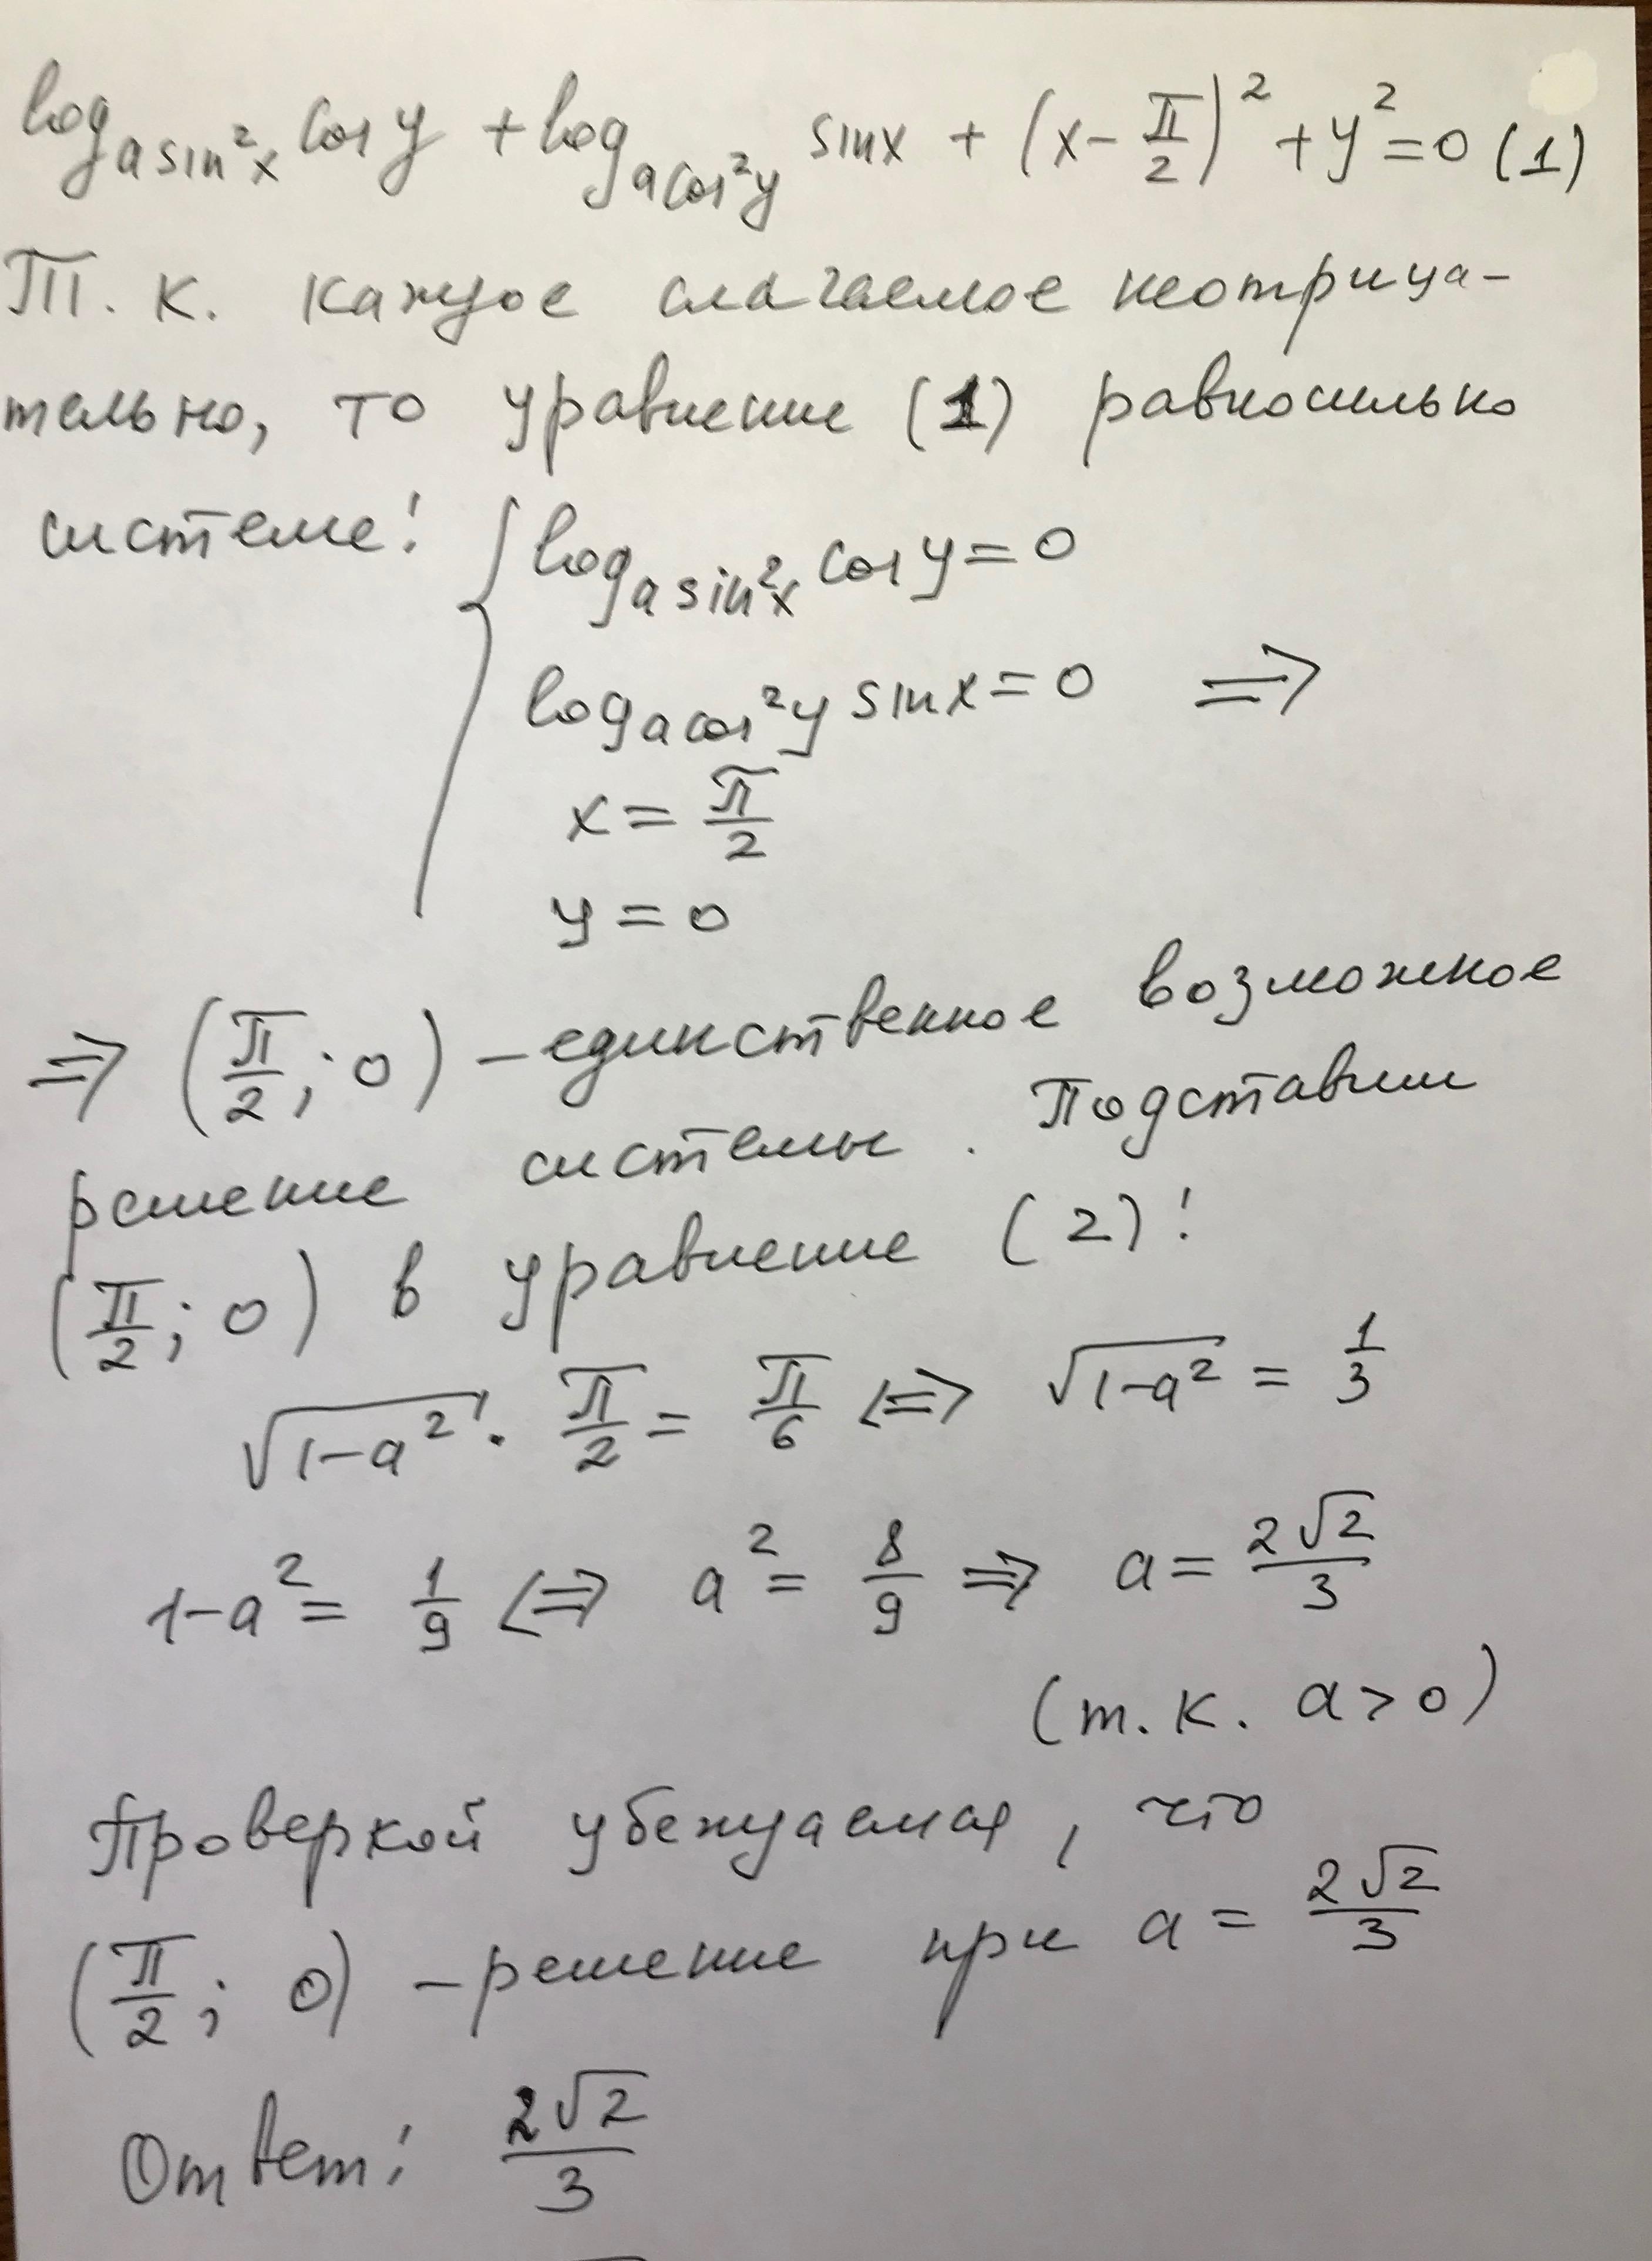 log_{a sin²x} cos y + log_{a cos²y} sin x + (x - π/2)² + y² = 0 (1)
Т. к. каждое слагаемое неотрица-
тельно, то уравнение (1) равносильно
системе: { log_{a sin²x} cos y = 0
log_{a cos²y} sin x = 0 ⇒
x = π/2
y = 0
⇒ (π/2; 0) - единственное возможное
решение системы. Подставим
(π/2; 0) в уравнение (2):
√(1-a²) · π/2 = π/6 ⇔ √(1-a²) = 1/3
1-a² = 1/9 ⇔ a² = 8/9 ⇒ a = 2√2/3
(т. к. a > 0)
Проверкой убеждаемся, что
(π/2; 0) - решение при a = 2√2/3
Ответ: 2√2/3